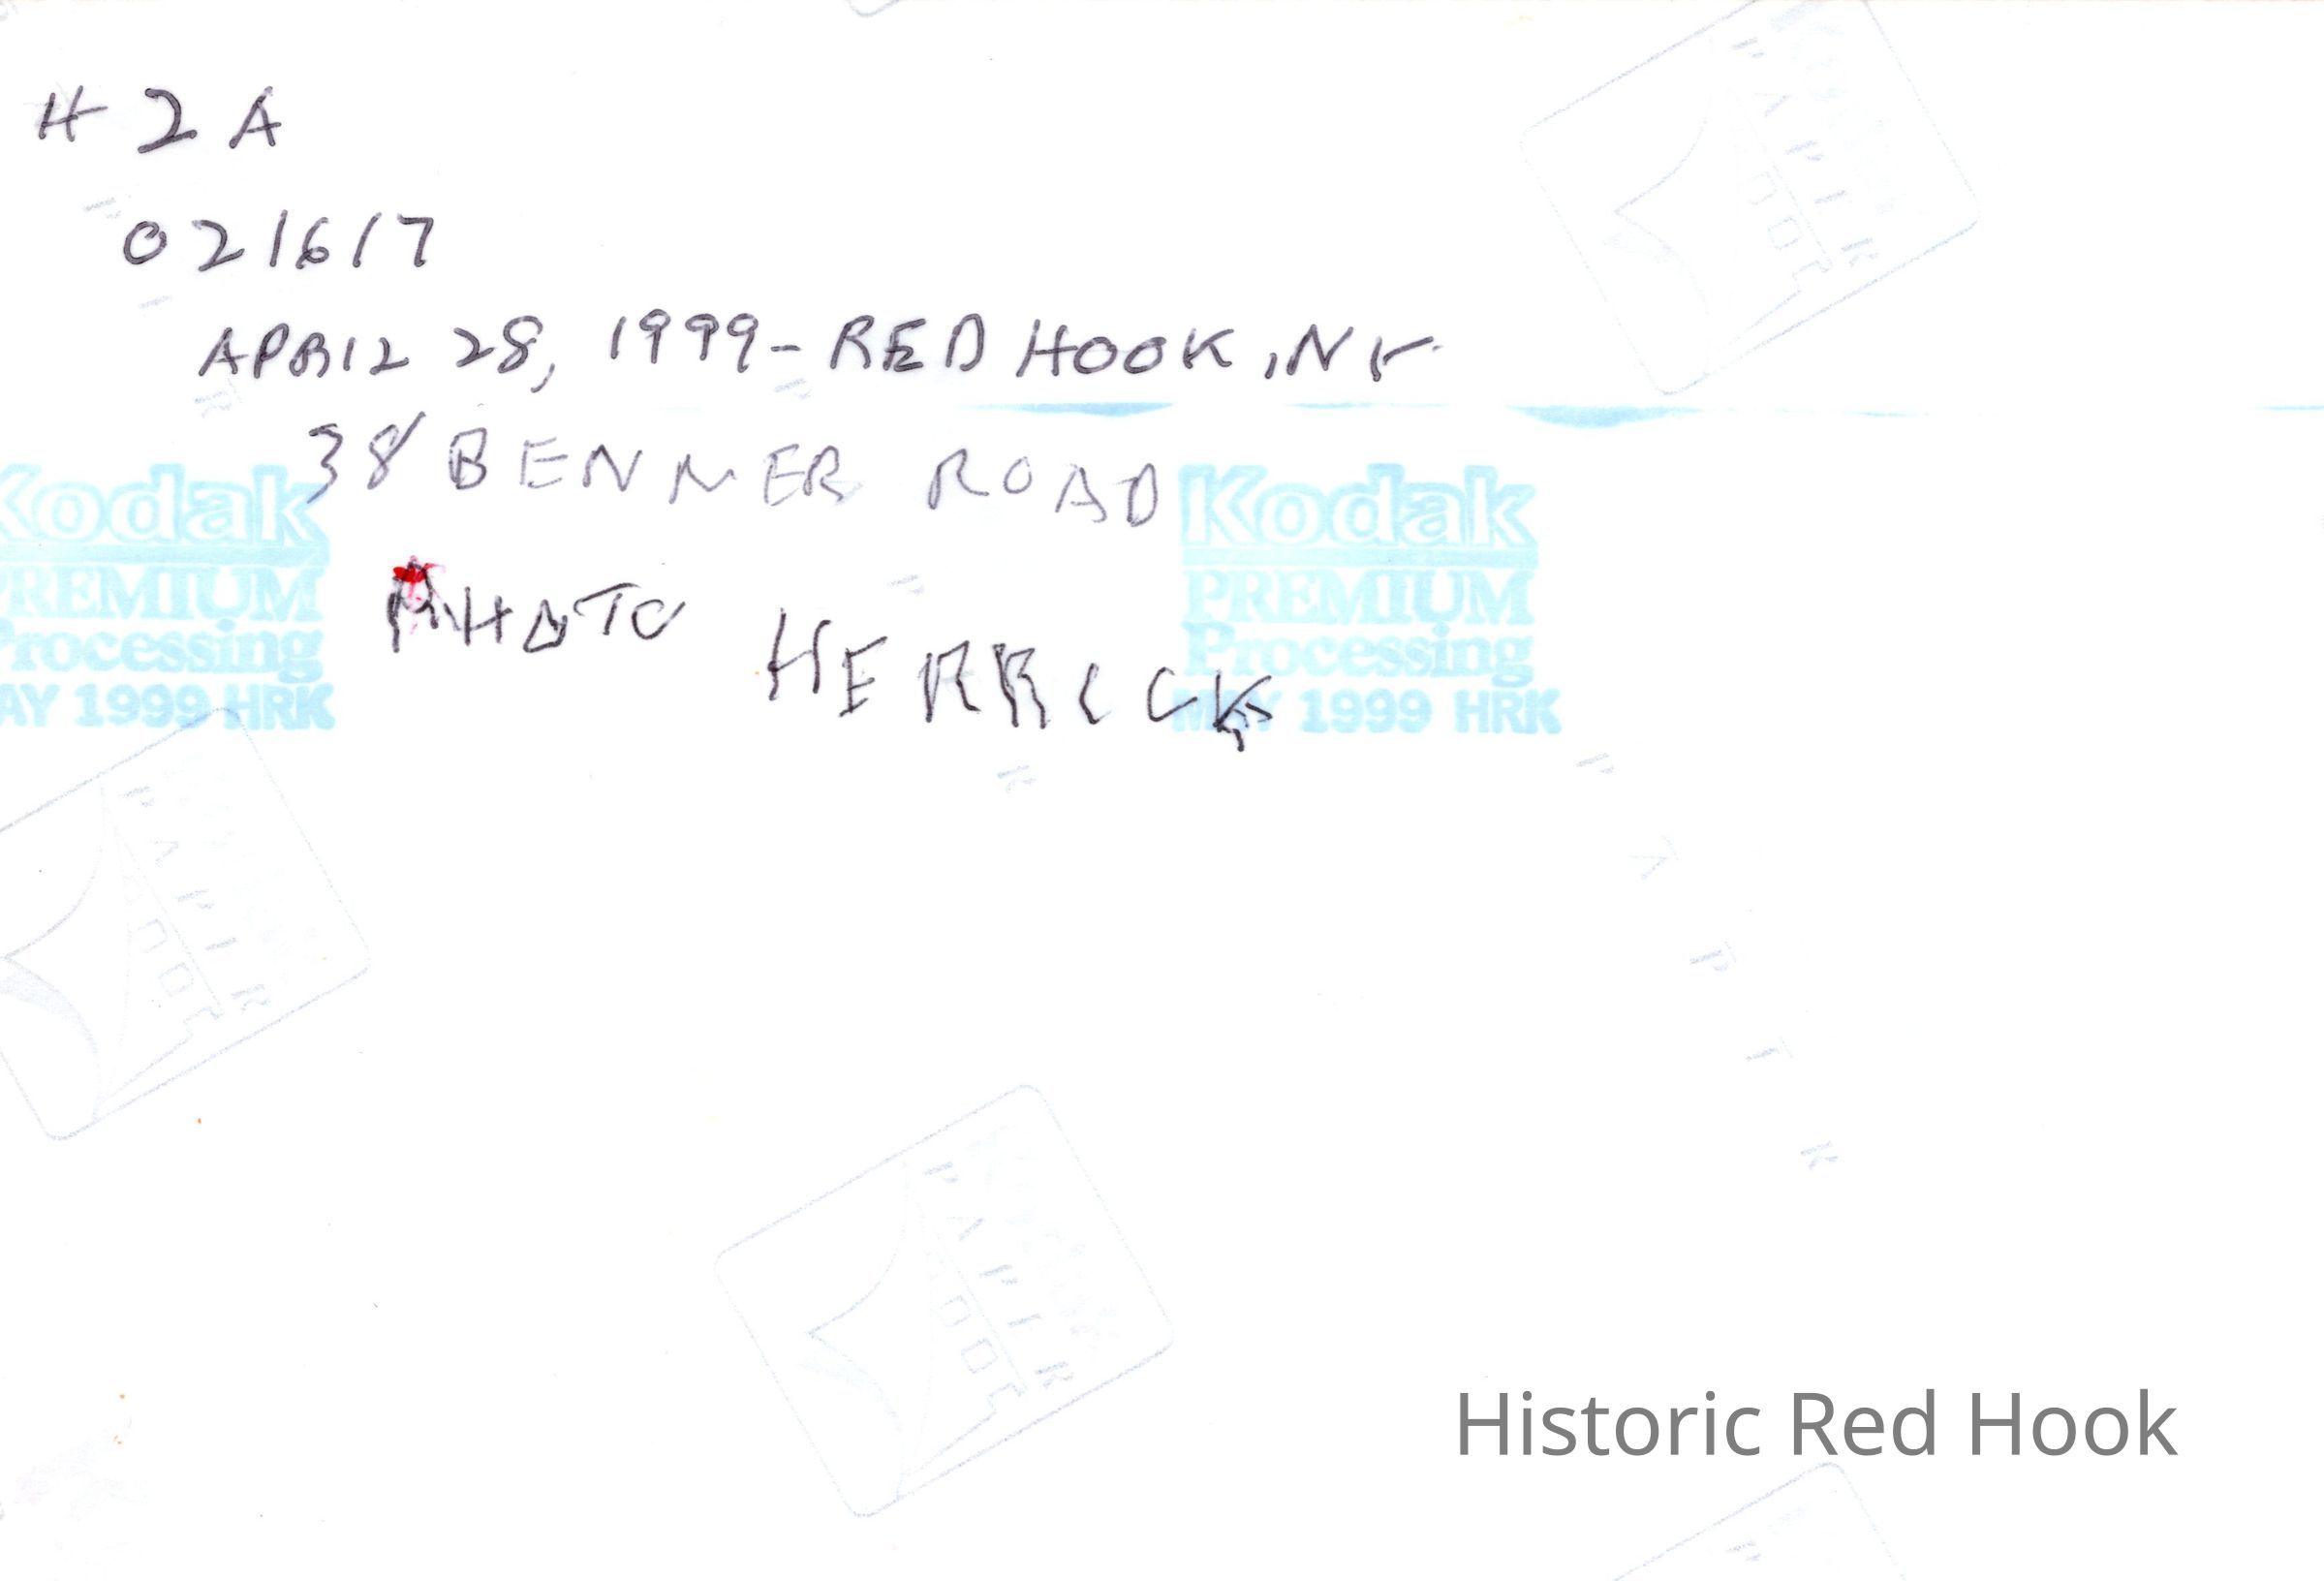 H 2 A
021617
APRIL 28, 1999 - RED HOOK, NY
38 BENNER ROAD
PHOTO HERRICK
Kodak
PREMIUM
Processing
MAY 1999 HRK
Kodak
PREMIUM
Processing
MAY 1999 HRK
Historic Red Hook